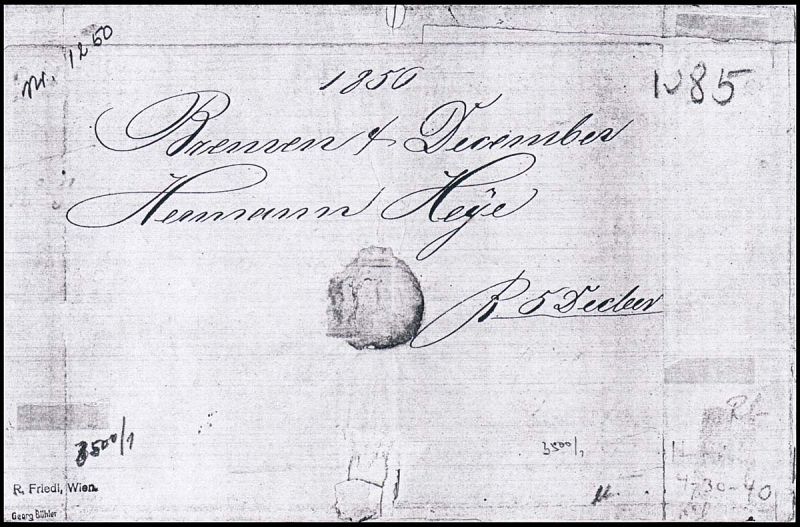 1850
Nr. 1250
1285
Bremen 4 December
Hermann Heÿe
R 5 Decber
3500/1
3500/1
R. Friedl, Wien.
Georg Bühler
4730-40